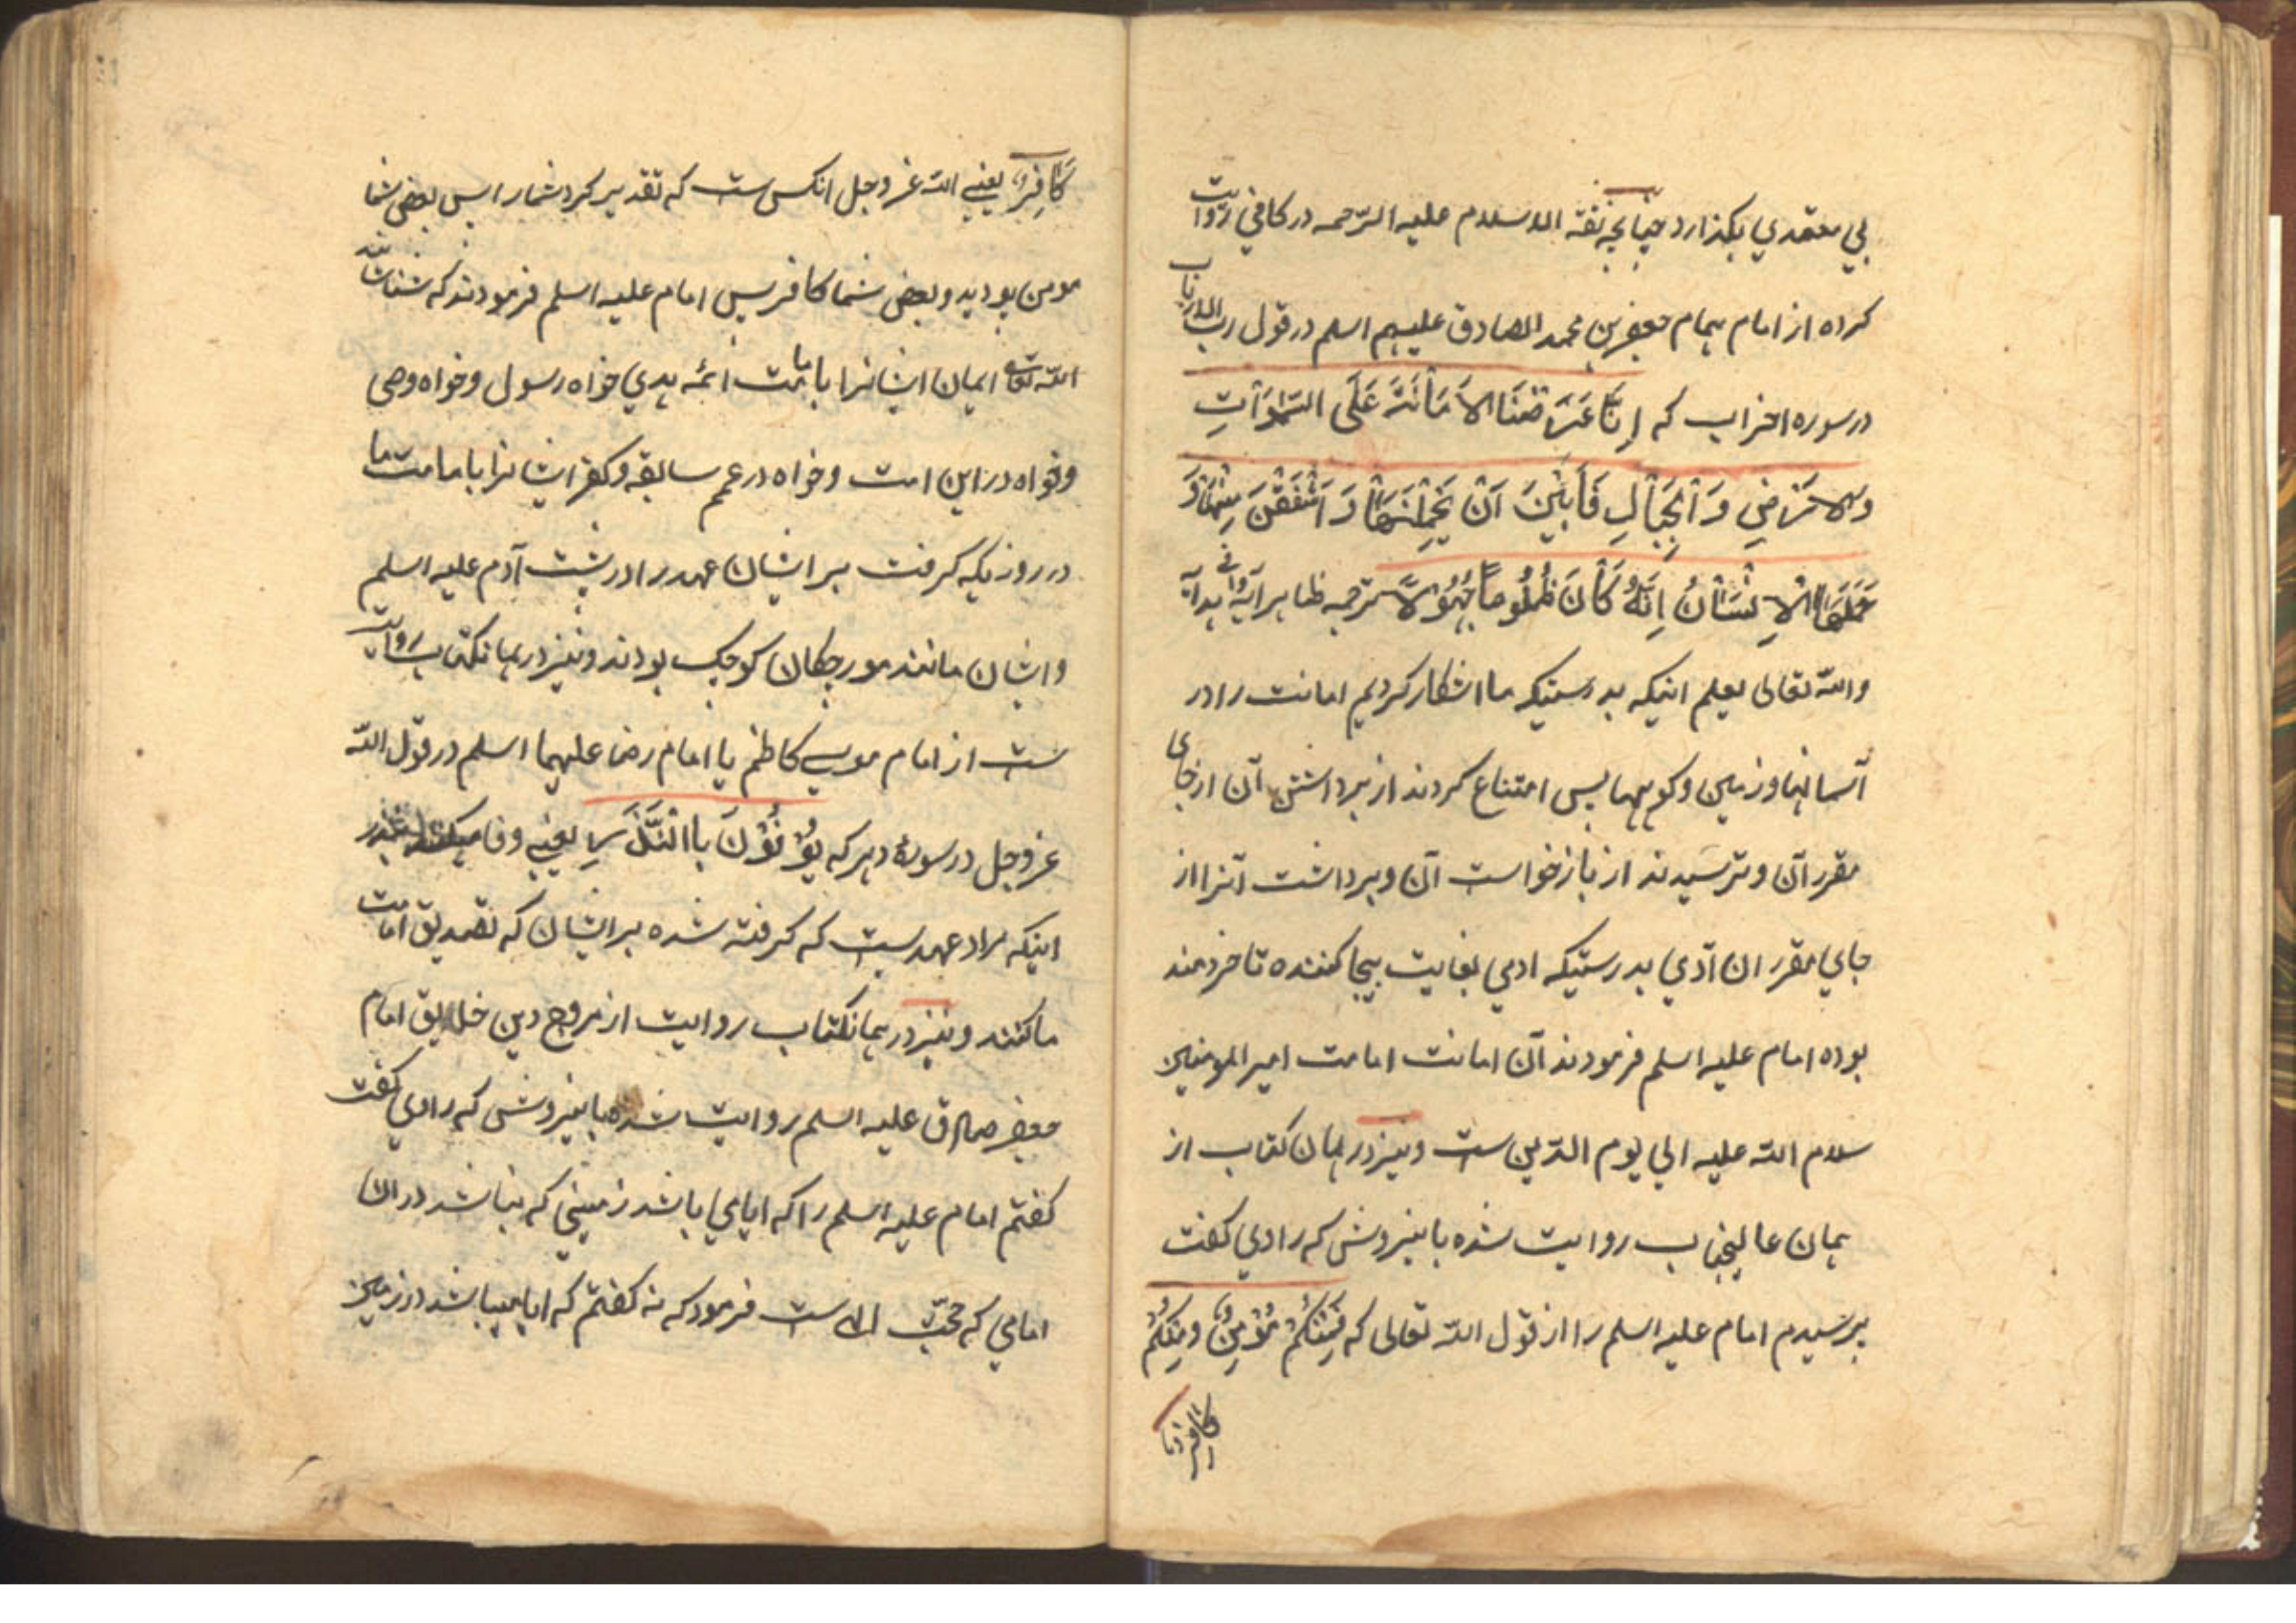 بي مقتدي بكذارد چنانچه ثقة الاسلام عليه الرّحمه در كافي روايت
كرده از امام همام جعفر بن محمد الصادق عليهم اسلم در قول رب الارباب
در سوره احزاب كه اِنَّا عَرَضْنَا الاَمَانَةَ عَلَى السَّمٰوَاتِ
وَالاَرْضِ وَالْجِبَالِ فَاَبَيْنَ اَنْ يَحْمِلْنَهَا وَ اَشْفَقْنَ مِنْهَا وَ
حَمَلَهَا الاِنْسَانُ اِنَّهُ كَانَ ظَلُومًا جَهُولاً ترجمه ظاهر آيهٔ وافي هدايه
والله تعالى يعلم اينكه بدرستيكه ما اشكار كرديم امانت را در
آسمانها و زمين و كوههما پس امتناع كردند از برداشتن آن از جاى
مقرر آن و ترسيدند از بازخواست آن و برداشت آنرا از
جاي مقرر ان آدمي بدرستيكه ادمي بغايت بيجا كننده تا خردمند
بوده امام عليه اسلم فرمودند آن امانت امامت امير المومنين
سلام الله عليه الي يوم الدّين ست و نيز در همان كتاب از
همان عاليجناب روايت شده باينروش كه راوي كفت
پرسيدم امام عليه اسلم را از قول الله تعالى كه فَمِنْكُمْ مُؤْمِنٌ وَمِنْكُمْ
كافر
كَافِرٌ يعني الله عزوجل انكس ست كه تقدير كرد شمارا پس بعضي شما
مومن بوديد و بعضي شما كافر پس امام عليه اسلم فرمودند كه شناساند
الله تعالى ايمان ايشانرا بامامت ائمه هدي خواه رسول و خواه وصى
و خواه در اين امت و خواه در امم سابقه و كفر ايشانرا بامامت ما
در روزيكه كرفت بر ايشان عهد را در پشت آدم عليه اسلم
و ايشان مانند مورچكان كوچك بودند و نيز در همانكتاب روايت
ست از امام موسي كاظم يا امام رضا عليهما اسلم در قول الله
عزوجل در سورهٔ دهر كه يُوْفُوْنَ بِاالْنَّذْرِ يعني وفا ميكنند بنذر
اينكه مراد عهديست كه كرفته شده بر ايشان كه تصديق امامت
ما كنند و نيز در همانكتاب روايت از مروج دين خلايق امام
جعفر صادق عليه اسلم روايت شده باينروش كه راوي كفت
كفتم امام عليه اسلم را كه ايا مي باشد زميني كه نباشد در ان
امامي كه حجّت الله ست فرمود كه نه كفتم كه ايا ميباشد در زمين